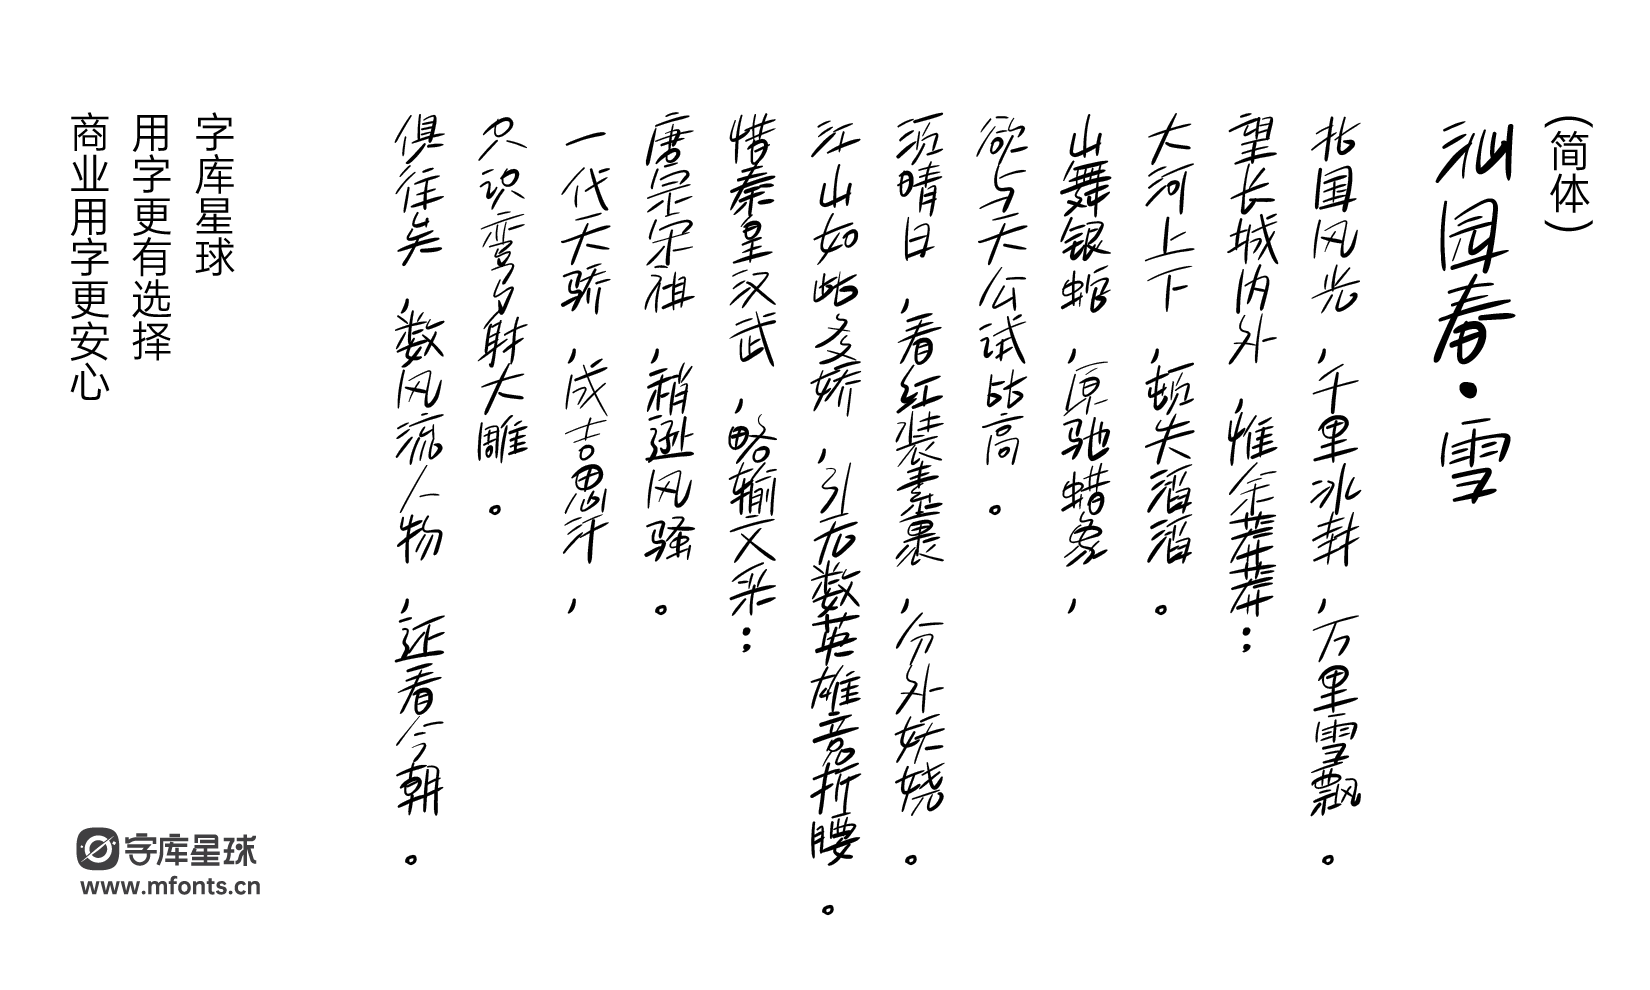 (简体)
沁园春·雪
北国风光,千里冰封,万里雪飘。
望长城内外,惟余莽莽;
大河上下,顿失滔滔。
山舞银蛇,原驰蜡象,
欲与天公试比高。
须晴日,看红装素裹,分外妖娆。
江山如此多娇,引无数英雄竞折腰。
惜秦皇汉武,略输文采;
唐宗宋祖,稍逊风骚。
一代天骄,成吉思汗,
只识弯弓射大雕。
俱往矣,数风流人物,还看今朝。
字库星球
用字更有选择
商业用字更安心
字库星球
www.mfonts.cn